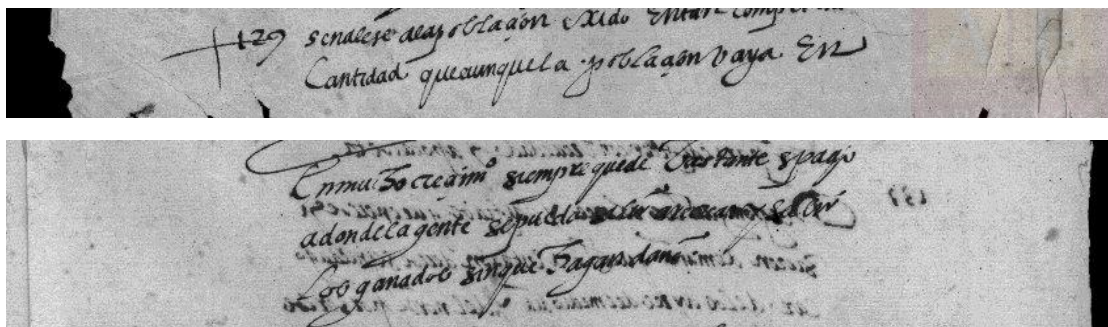 129 señalese a la poblaçon exido En tan competente
Cantidad que aunque la poblaçon vaya En
En mucho creçimjº siempre quede bastante espaçio
a donde la gente se pueda salir a recrear y salir
Los ganados sin que hagan daño